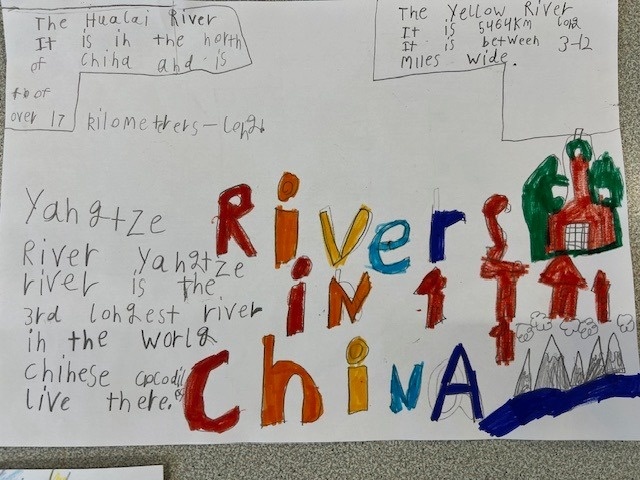 The Hualai River
It is in the north
of China and is
over 17 kilometters-long
The Yellow River
It is 5464KM long
It is between 3-12
Miles wide.
Yangtze
River Yangtze
river is the
3rd longest river
in the world
Chinese crocodiles
live there.
Rivers
in
China